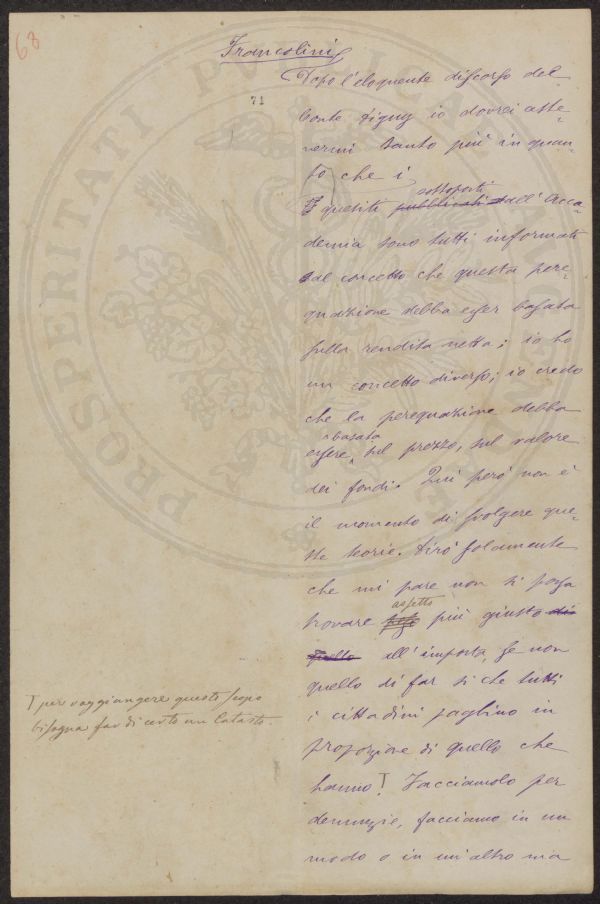 68
Francolini
71
Dopo l'eloquente discorso del
Conte Digny io dovrei aste-
nermi tanto più in quan-
to che i
I quesiti pubblicati sottoposti dall'Acca-
demia sono tutti informati
dal concetto che questa pere-
quazione debba esser basata
sulla rendita netta; io ho
un concetto diverso; io credo
che la perequazione debba
essere basata sul prezzo, sul valore
dei fondi. Qui però non è
il momento di svolgere que-
ste teorie. Dirò solamente
che mi pare non si possa
trovare assetto più giusto di
quello all'imposta, se non
quello di far sì che tutti
i cittadini paghino in
proporzione di quello che
hanno T Facciamolo per
denunzie, facciamo in un
modo o in un'altro ma
T per raggiungere questo scopo
bisogna far di certo un Catasto.
PROSPERITATI PVBLICAE AVGENDAE